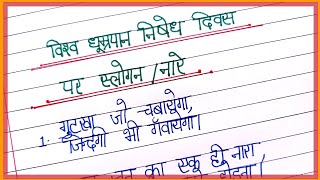 विश्व धूम्रपान निषेध दिवस
पर स्लोगन/नारे
1. गुटखा जो चबायेगा,
जिन्दगी भी गँवायेगा।
का एक ही नारा